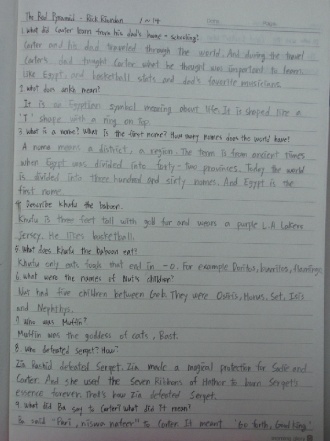 The Red Pyramid - Rick Riordan 1~14 Date
1. What did Carter learn from his dad's home-schooling?
Carter and his dad traveled through the world. And during the travel
Carter's dad taught Carter what he thought was important to learn
like Egypt, and basketball stats and dad's favorite musicians.
2. What does ankh mean?
It is an Egyptian symbol meaning about life. It is shaped like a
'T' shape with a ring on top.
3. What is a nome? What is the first nome? How many nomes does the world have?
A nome means a district, a region. The term is from ancient times
when Egypt was divided into forty-two provinces. Today the world
is divided into three hundred and sixty nomes. And Egypt is the
first nome.
4. Describe Khufu the baboon.
Khufu is three feet tall with gold fur and wears a purple L.A. Lakers
Jersey. He likes basketball.
5. What does Khufu the baboon eat?
Khufu only eats foods that end in -o. For example Doritos, burritos, flamingos.
6. What were the names of Nut's children?
Nut had five children between Geb. They were Osiris, Horus, Set, Isis
and Nephthys.
7. Who was Muffin?
Muffin was the goddess of cats, Bast.
8. Who defeated Serqet? How?
Zia Rashid defeated Serqet. Zia made a magical protection for Sadie and
Carter. And she used the Seven Ribbons of Hathor to burn Serqet's
essence forever. That's how Zia defeated Serqet.
9. What did Ba say to Carter? What did it mean?
Ba said to Carter. It meant "Go forth, Good King."